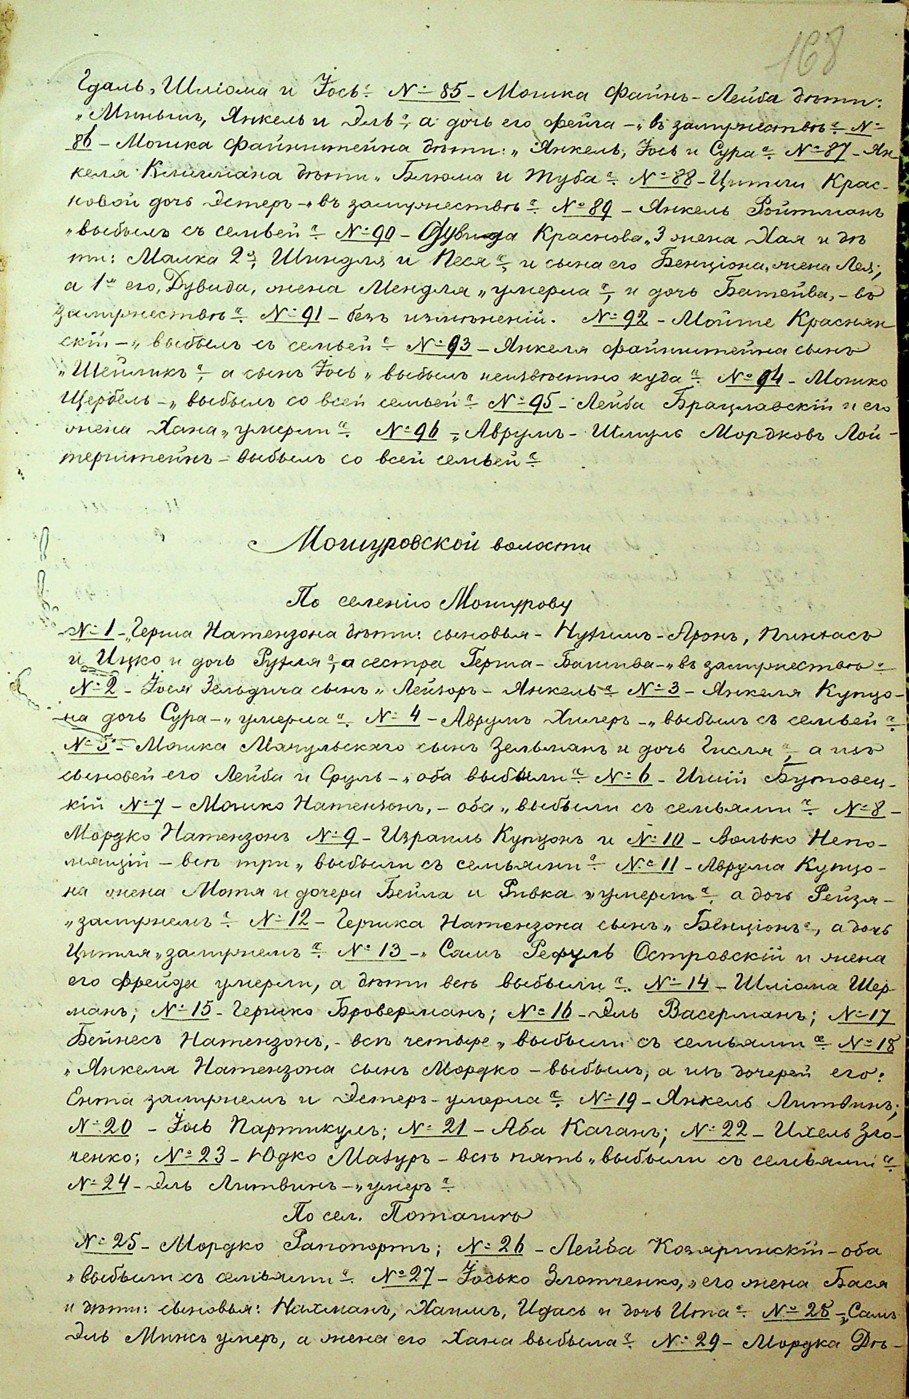 168
Гдаль, Шліома и Іось". № 85 - Мошка Файнъ - Лейба дѣти:
"Миньш, Янкель и Эль", а дочь его Фейга - "въ замужествѣ". №
86 - Мошка Файнштейна дѣти: "Янкель, Іось и Сура". № 87 - Ян-
келя дѣти "Блюма и Туба". № 88 - Крас-
новой дочь Эстеръ - "въ замужествѣ". № 89 - Янкель Ройтманъ
"выбылъ съ семьей". № 90 - Дувида Краснова "3 жена Хая и дѣ
ти: Малка 2я, Шиндля и Песя", и сына его Бенціона, жена Лея,
а 1ая его, Дувида, жена Мендля "умерла", и дочь Батейва, - въ
замужествѣ". № 91 - безъ измѣненій. № 92 - Мойше Краснян
скій - "выбылъ съ семьей". № 93 - Янкеля Файнштейна сынъ
"Шейликъ", а сынъ Іось "выбылъ неизвѣстно куда". № 94 - Мошко
Щербель - "выбылъ со всей семьей". № 95 - Лейба Брацлавскій и его
жена Хана "умерли". № 96 - "Аврумъ - Шмуль Мордковъ Лой-
терштейнъ - выбылъ со всей семьей".
Мошуровской волости
По селенію Мошурову
№ 1 - "Герша Натензона дѣти: сыновья - Нухимъ - Аронъ, Пинхасъ
и Ицко и дочь Рухля", а сестра Герша - Башива - "въ замужествѣ".
№ 2 - Іося Зельдича сынъ "Лейзоръ - Янкель". № 3 - Янкеля Купцо-
на дочь Сура - "умерла". № 4 - Аврумъ Хигеръ - "выбылъ съ семьей".
№ 5 - Мошка Мачульскаго сынъ Зельманъ и дочь Гисля", а изъ
сыновей его Лейба и Сруль - "оба выбыли". № 6 - Бутовец-
кій № 7 - Мошко Натензонъ, - оба "выбыли съ семьями". № 8 -
Мордко Натензонъ № 9 - Израиль Купцонъ и № 10 - Волько Непо-
мящій - всѣ три "выбыли съ семьями". № 11 - Аврума Купцо-
на жена Мотя и дочери Бейла и Ривка "умерли", а дочь Рейзя -
"замужемъ". № 12 - Гершка Натензона сынъ "Бенціонъ", а дочь
Цитля "замужемъ". № 13 - "Самъ Рефуль Островскій и жена
его Фрейда умерли, а дѣти всѣ выбыли". № 14 - Шліома Шер-
манъ; № 15 - Гершко Броверманъ; № 16 - Эль Васерманъ; № 17
Бейнесъ Натензонъ, - всѣ четыре "выбыли съ семьями". № 18
"Янкеля Натензона сынъ Мордко - выбылъ, а изъ дочерей его:
Ента замужемъ и Эстеръ - умерла". № 19 - Янкель Литвинъ;
№ 20 - Іось Партикулъ; № 21 - Аба Каганъ; № 22 - Ихель Зло-
ченко; № 23 - Юдко Мазуръ - всѣ пять "выбыли съ семьями".
№ 24 - Эль Литвинъ - "умеръ".
По сел. Поташню
№ 25 - Мордко Рапопортъ; № 26 - Лейба Козяринскій - оба
"выбыли съ семьями". № 27 - Іосько Злотченко, "его жена Бася
и дѣти: сыновья: Нахманъ, Хаимъ, Идась и дочь Ита". № 28 - "Самъ
Эль Минж умеръ, а жена его Хана выбыла". № 29 - Мордка Дѣ-